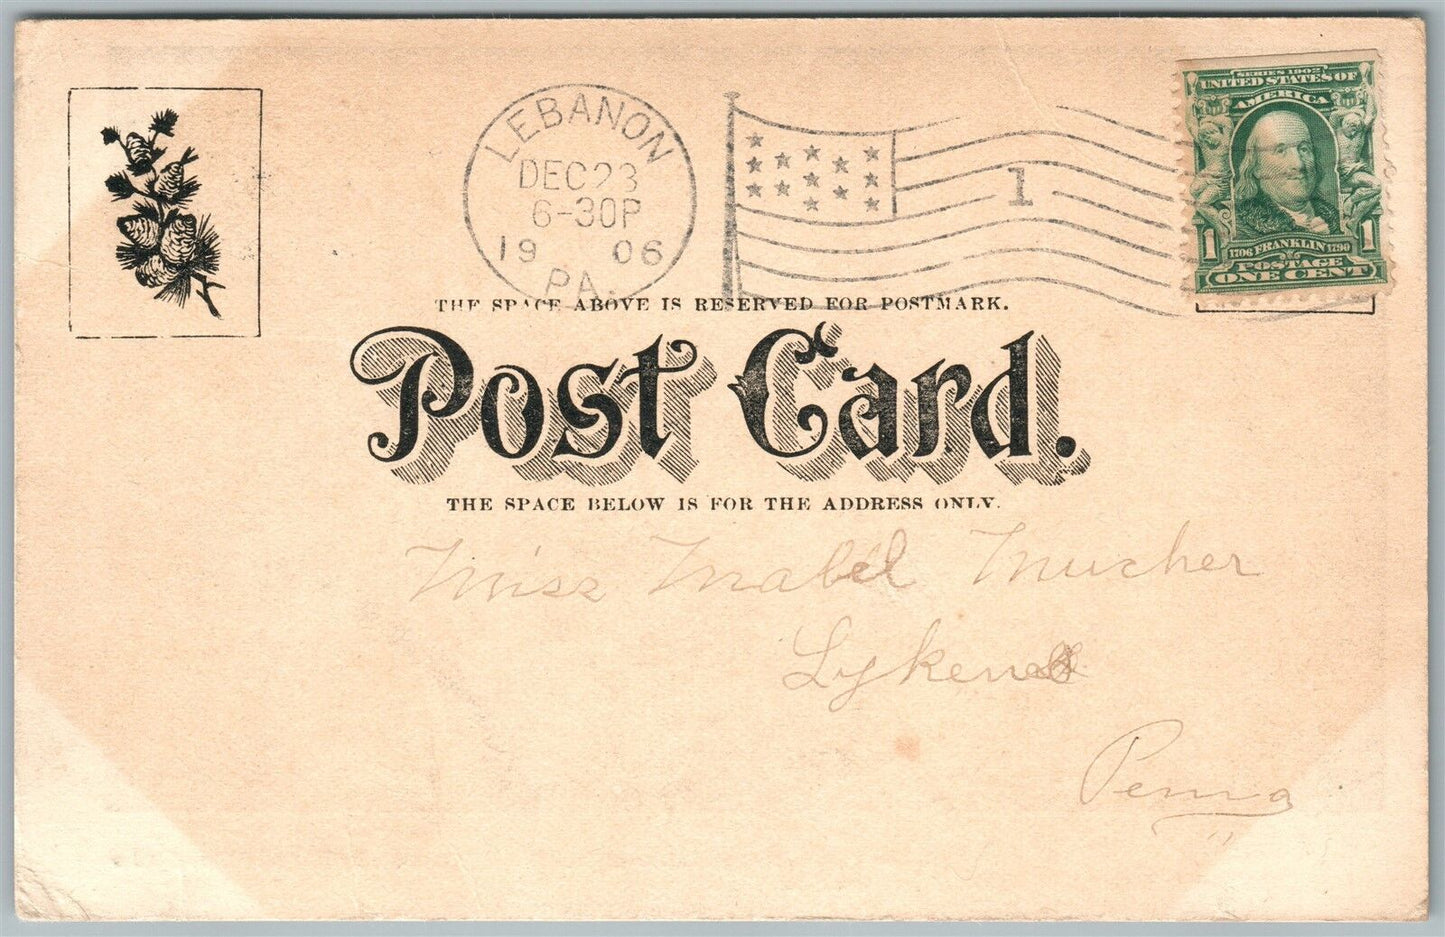 LEBANON
DEC 23
6-30P
1906
PA.
1
SERIES 1902
UNITED STATES OF
AMERICA
1 1
1706 FRANKLIN 1790
POSTAGE
ONE CENT
THE SPACE ABOVE IS RESERVED FOR POSTMARK.
Post Card.
THE SPACE BELOW IS FOR THE ADDRESS ONLY.
Miss Mabel Mucher
Lykens
Penna